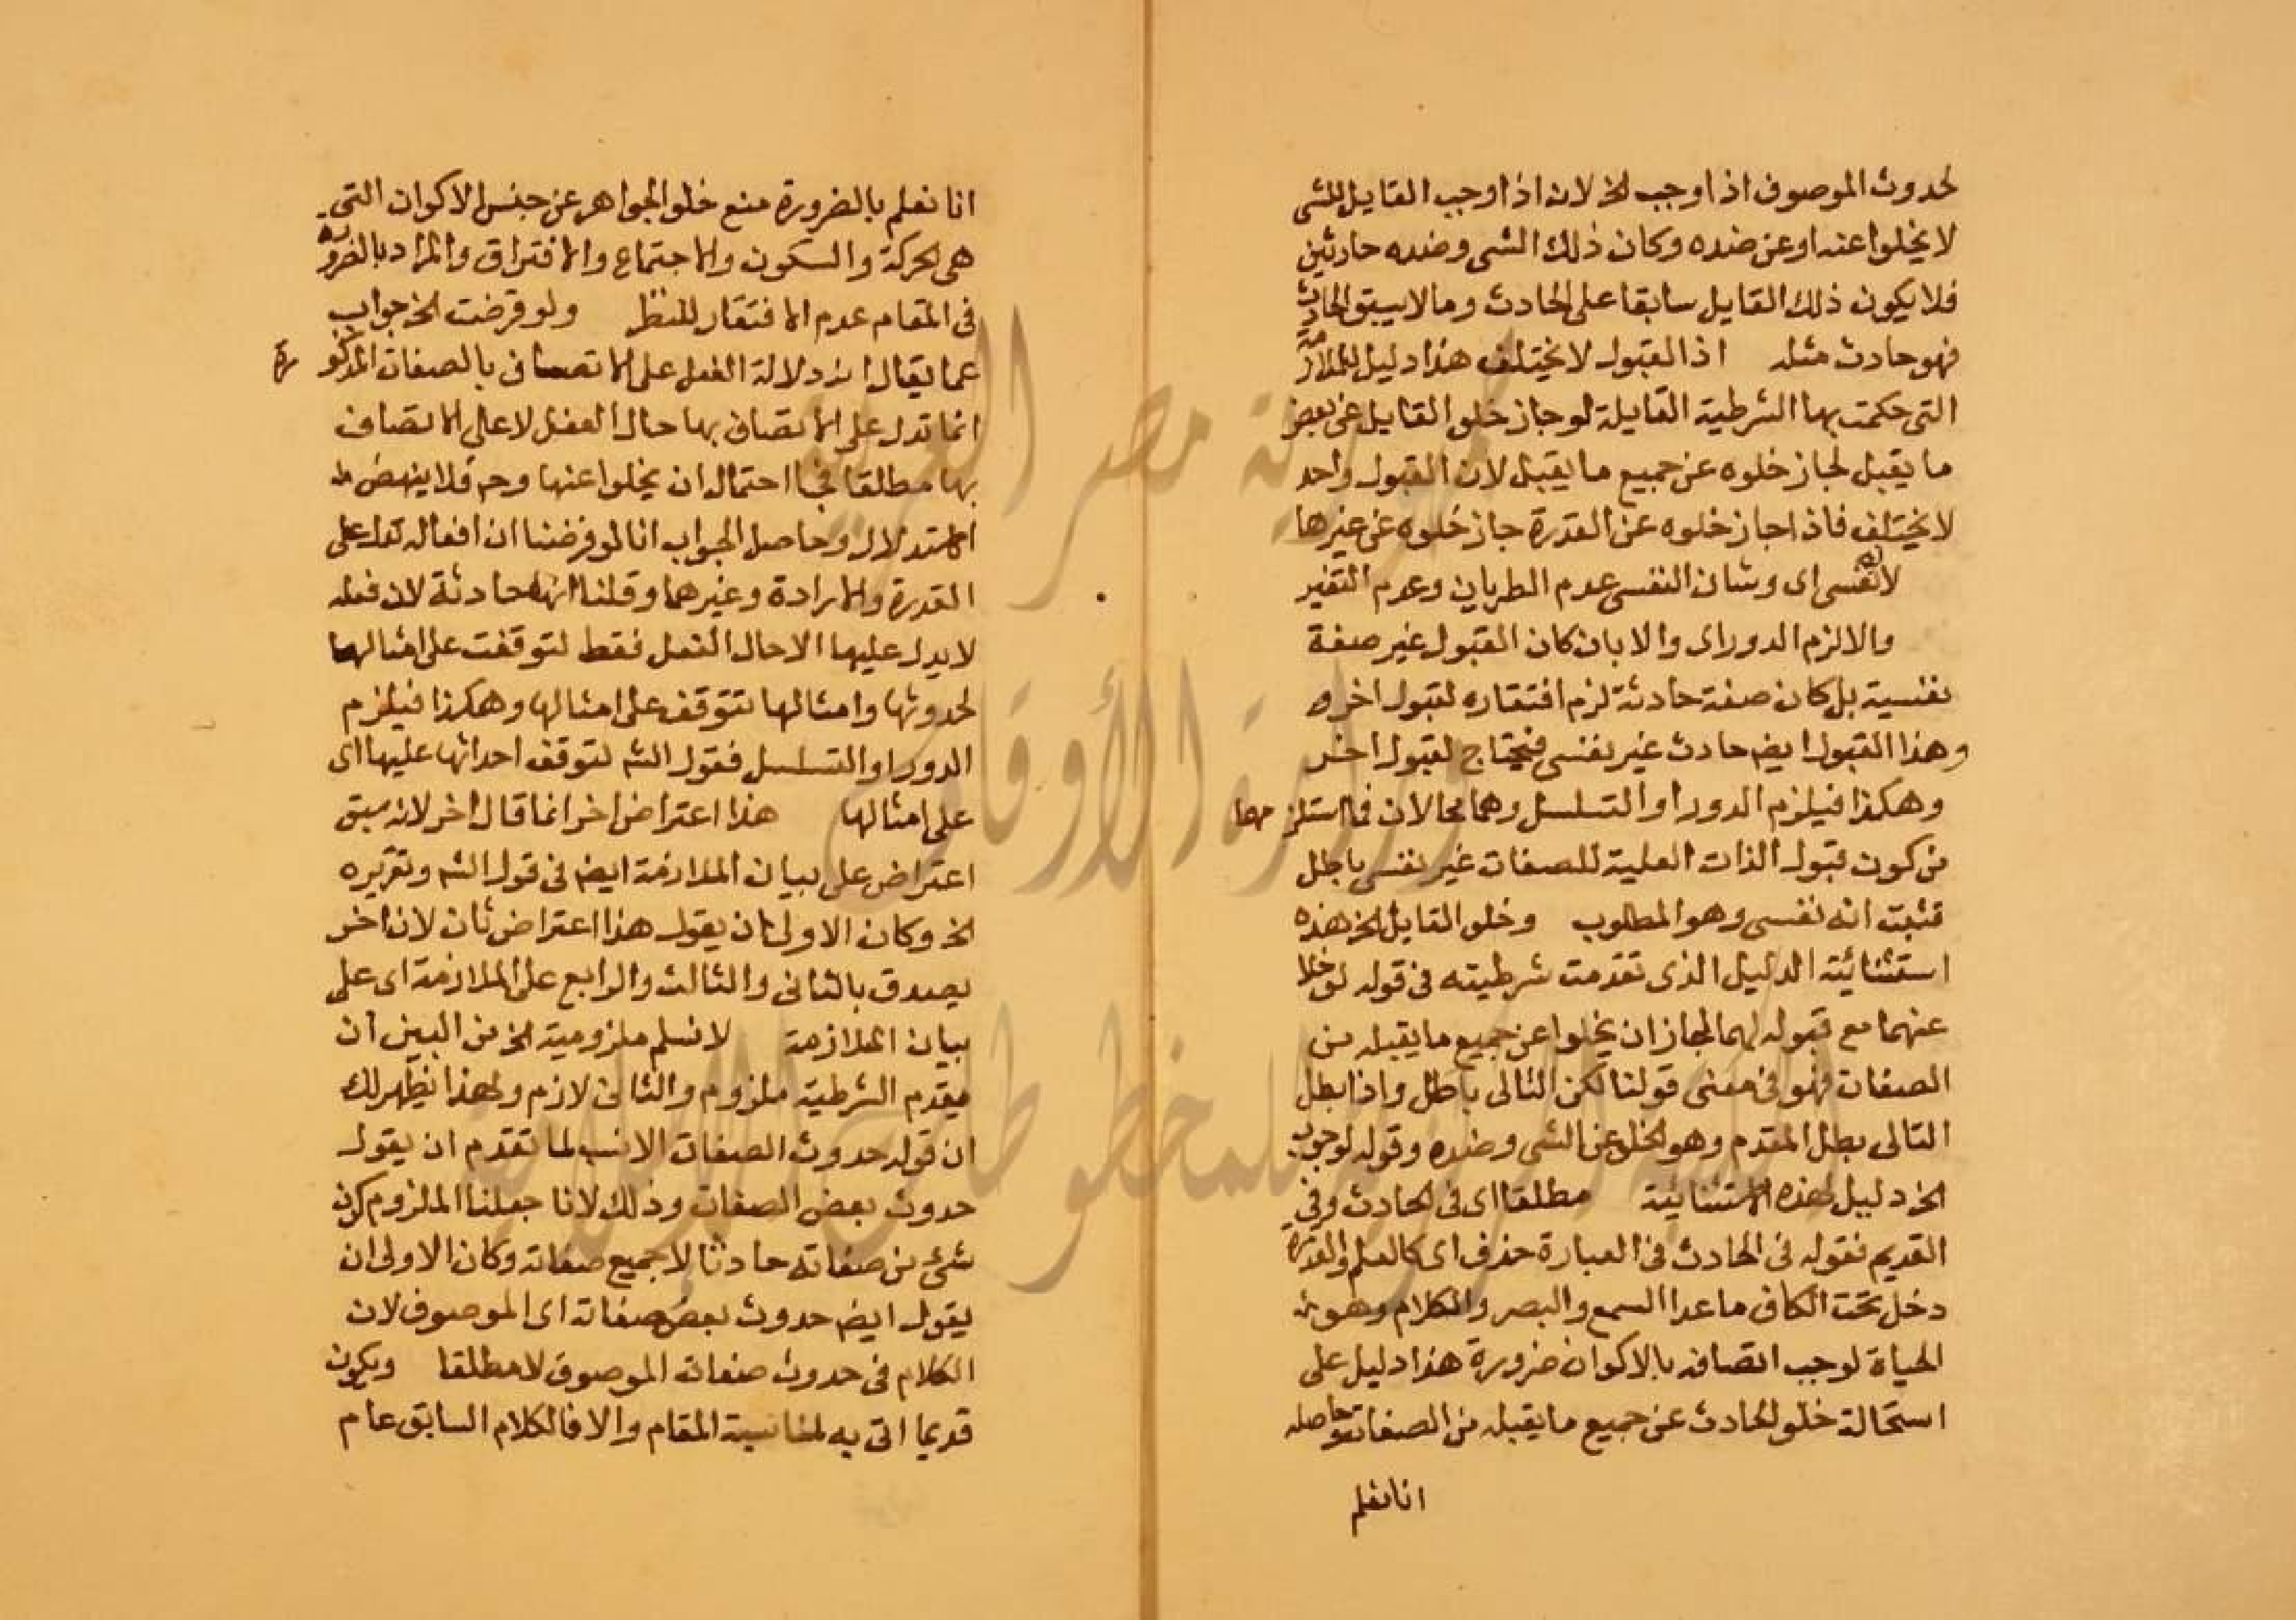 لحدوث الموصوف اذا وجب الخ لانه اذا وجب القايل للشى
لا يخلوا عنه او عن ضده وكان ذلك الشى وضده حادثين
فلا يكون ذلك القايل سابقا على الحادث وما لا يسبق الحادث
فهو حادث مثله اذ القبول لا يختلف هذا دليل للملازمة
التى حكمت بها الشرطية القايلة لو جاز خلو القايل عن بعض
ما يقبل لجاز خلوه عن جميع ما يقبل لان القبول واحد
لا يختلف فاذا جاز خلوه عن القدرة جاز خلوه عن غيرها
لانه نفسى اى وشان النفسى عدم الطريان وعدم التغير
والا لزم الدور اى والا بان كان القبول غير صفة
نفسية بل كان صفة حادثة لزم افتقاره لقبول اخر و
وهذا القبول ايضم حادث غير نفسى فيحتاج لقبول اخر
وهكذا فيلزم الدور او التسلسل وهما محالان فما استلزمهما
من كون قبول الذات العلية للصفات غير نفسى باطل
فثبت انه نفسى وهو المطلوب وخلو القايل الخ هذه
استثنائية الدليل الذى تقدمت شرطيته فى قوله لو خلا
عنهما مع قبوله لهما لجاز ان يخلوا عن جميع ما يقبله من
الصفات فهو فى معنى قولنا لكن التالى باطل واذا بطل
التالى بطل المقدم وهو الخلو عن الشى وضده وقوله لوجوب
الخ دليل لهذه الاستثنائية مطلقا اى فى الحادث وفى
القديم فقوله فى الحادث فى العبارة حذف اى كالعلم والقدرة
دخل تحت الكاف ما عدا السمع والبصر والكلام وهو
الحياة لوجب اتصافه بالاكوان ضرورة هذا دليل على
استحالة خلو الحادث عن جميع ما يقبله من الصفات وحاصله
انا نعلم
انا نعلم بالضرورة منع خلو الجواهر عن جنس الاكوان التى
هى الحركة والسكون والاجتماع والافتراق والمراد بالضرورة
فى المقام عدم الافتقار للنظر ولو فرضت الخ جواب
عما يقال ان دلالة الفعل على الاتصاف بالصفات المذكورة
انما تدل على الاتصاف بها حال الفعل لا على الاتصاف
بها مطلقا فجا احتمال ان يخلوا عنها وحم فلا ينهض
الاستدلال وحاصل الجواب انا لو فرضنا ان افعاله تدل على
القدرة والارادة وغيرهما وقلنا انها حادثة لان فعله
لا يدل عليها الا حال الفعل فقط لتوقفت على امثالها
لحدوثها وامثالها تتوقف على امثالها وهكذا فيلزم
الدور او التسلسل فقول الشم لتوقف احداثها عليها اى
على امثالها هذا اعتراض اخر انما قال اخر لانه سبق
اعتراض على بيان الملازمة ايضم فى قول الشم وتقريره
الخ وكان الاولى ان يقول هذا اعتراض ثان لان اخر
يصدق بالثانى والثالث والرابع على الملازمة اى على
بيان الملازمة لا نسلم ملزومية الخ من البين ان
مقدم الشرطية ملزوم والتالى لازم ولهذا يظهر لك
ان قوله حدوث الصفات الانسب لما تقدم ان يقول
حدوث بعض الصفات وذلك لانا جعلنا الملزوم كون
شئ من صفاته حادثا لا جميع صفاته وكان الاولى ان
يقول ايضم حدوث بعض صفاته اى الموصوف لان
الكلام فى حدوث صفات الموصوف لا مطلقا ويكون
قديما اتى به لمناسبة المقام والا فالكلام السابق عام